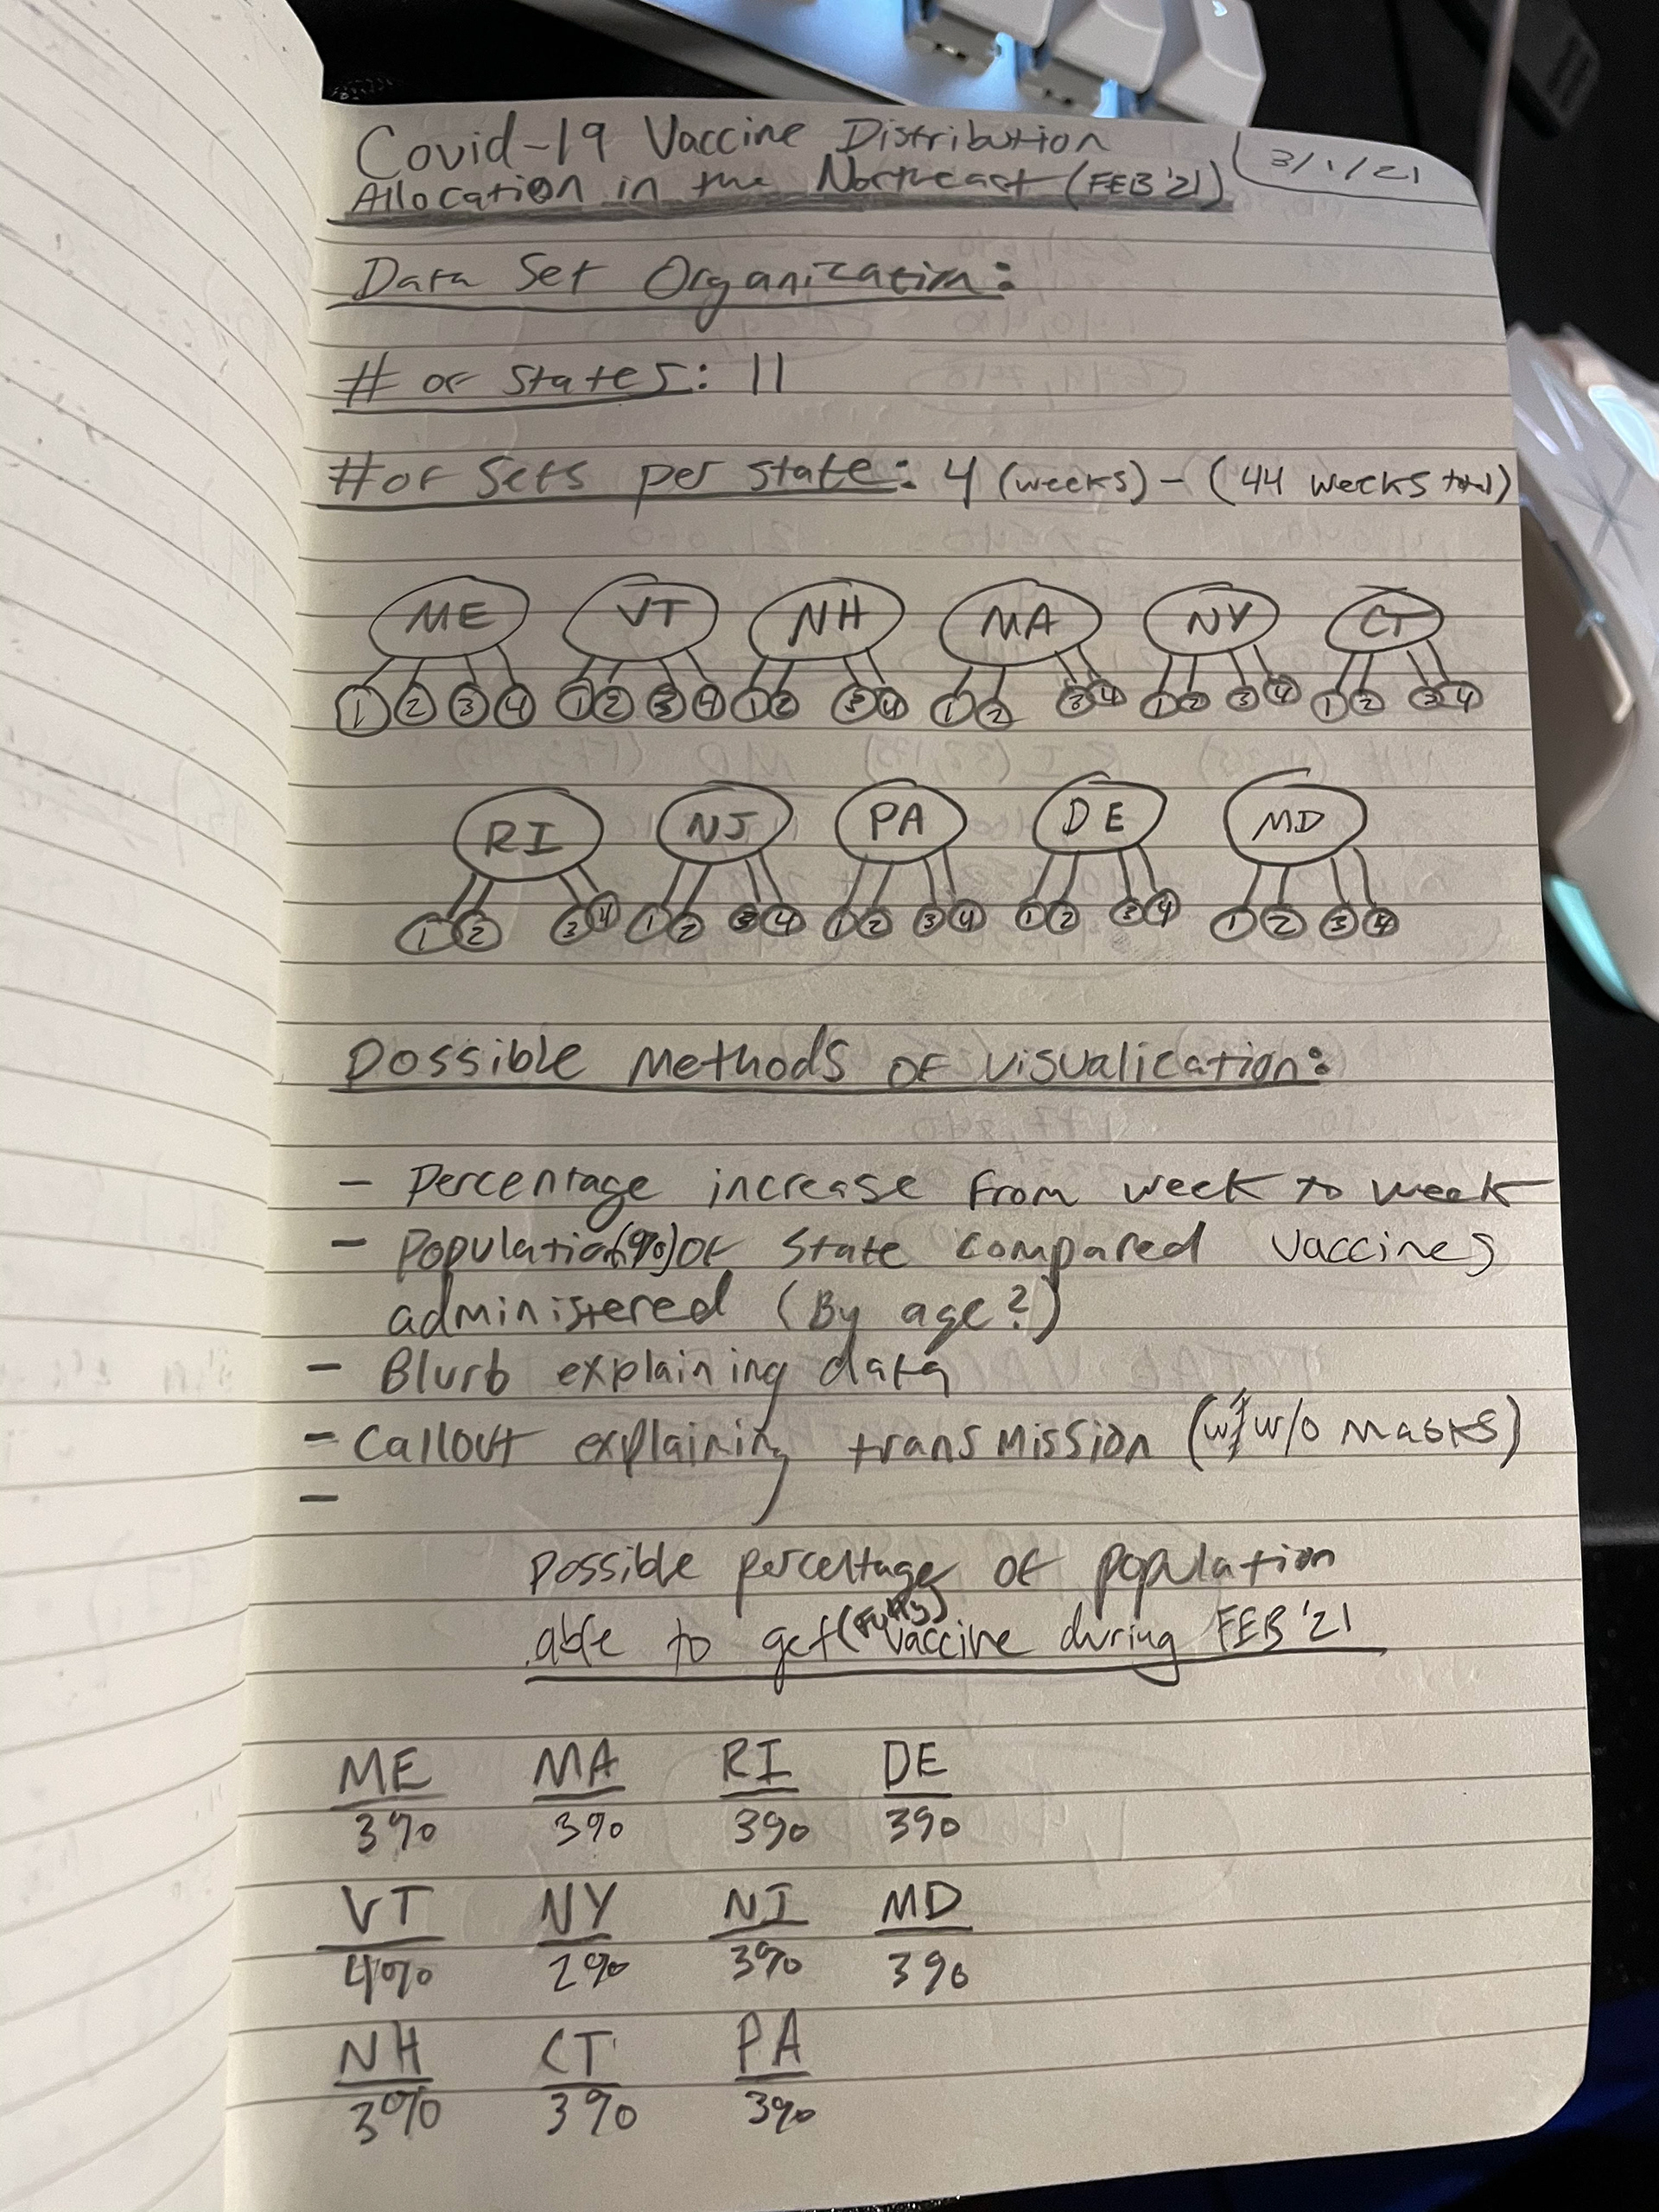 Covid-19 Vaccine Distribution
Allocation in the Northeast (FEB '21)
3/1/21
Data Set Organization:
# of states: 11
# of sets per state: 4 (weeks) - (44 weeks total)
ME VT NH MA NY CT
1 2 3 4 1 2 3 4 1 2 3 4 1 2 3 4 1 2 3 4 1 2 3 4
RI NJ PA DE MD
1 2 3 4 1 2 3 4 1 2 3 4 1 2 3 4 1 2 3 4
Possible Methods of Visualication:
- Percentage increase from week to week
- Population(%) of state compared vaccines
administered (By age?)
- Blurb explaining data
- Callout explaining transmission (w/ w/o masks)
-
Possible percentage of population
able to get (fully) vaccine during FEB '21
ME MA RI DE
3% 3% 3% 3%
VT NY NJ MD
4% 2% 3% 3%
NH CT PA
3% 3% 3%